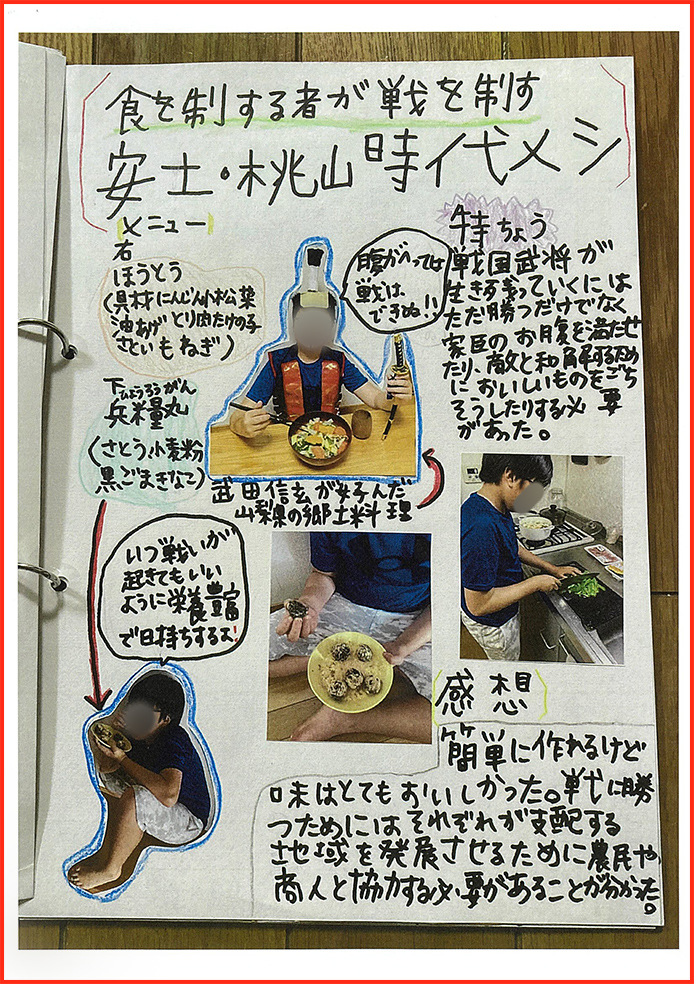 食を制する者が戦を制す
安土・桃山時代メシ
メニュー
右
ほうとう
(具材にんじん小松菜
油あげとり肉たけの子
さといもねぎ)
下ひょうろうがん
兵糧丸
(さとう小麦粉
黒ごまきなこ)
腹がへっては
戦は
できぬ!!
武田信玄が好んだ
山梨県の郷土料理
特ちょう
戦国武将が
生き残っていくには
ただ勝つだけでなく
家臣のお腹を満たせ
たり、敵と和解するため
においしいものをごち
そうしたりする必要
があった。
いつ戦いが
起きてもいい
ように栄養豊富
で日持ちするよ!
感想
簡単に作れるけど
味はとてもおいしかった。戦に勝
つためにはそれぞれが支配する
地域を発展させるために農民や
商人と協力する必要があることが分かった。